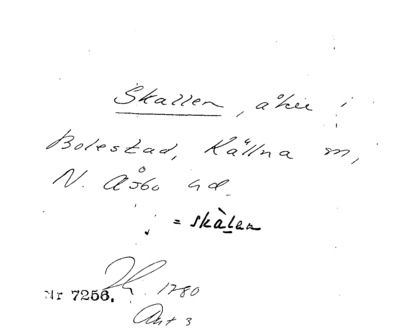 Skallen, åker i
Bolestad, Källna sn,
N. Åsbo hd.
= skàlen
Nr 7256. 1780
Ant 3